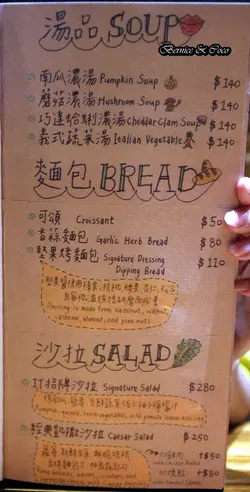 湯品 SOUP
Bernice & Coco
南瓜濃湯 Pumpkin Soup $140
蘑菇濃湯 Mushroom Soup $140
巧達蛤蜊濃湯 Cheddar Clam Soup $140
義式蔬菜湯 Italian Vegetable $140
麵包 BREAD
可頌 Croissant $50
香蒜麵包 Garlic Herb Bread $80
堅果烤麵包 Signature Dressing $110
Dipping Bread
Dressing is made from hazelnut, walnut,
cashew, almond, and pine nuts
沙拉 SALAD
IT招牌沙拉 Signature Salad $280
Pumpkin, quinoa, fresh vegetable, with pomelo lemon dressing
經典凱撒沙拉 Caesar Salad $250
with Chicken Breast +$50
+$80